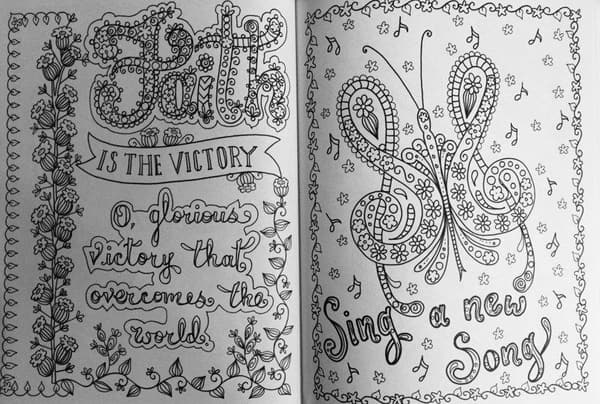 Faith
IS THE VICTORY
O, glorious
victory that
overcomes the
world.
Sing a new
Song